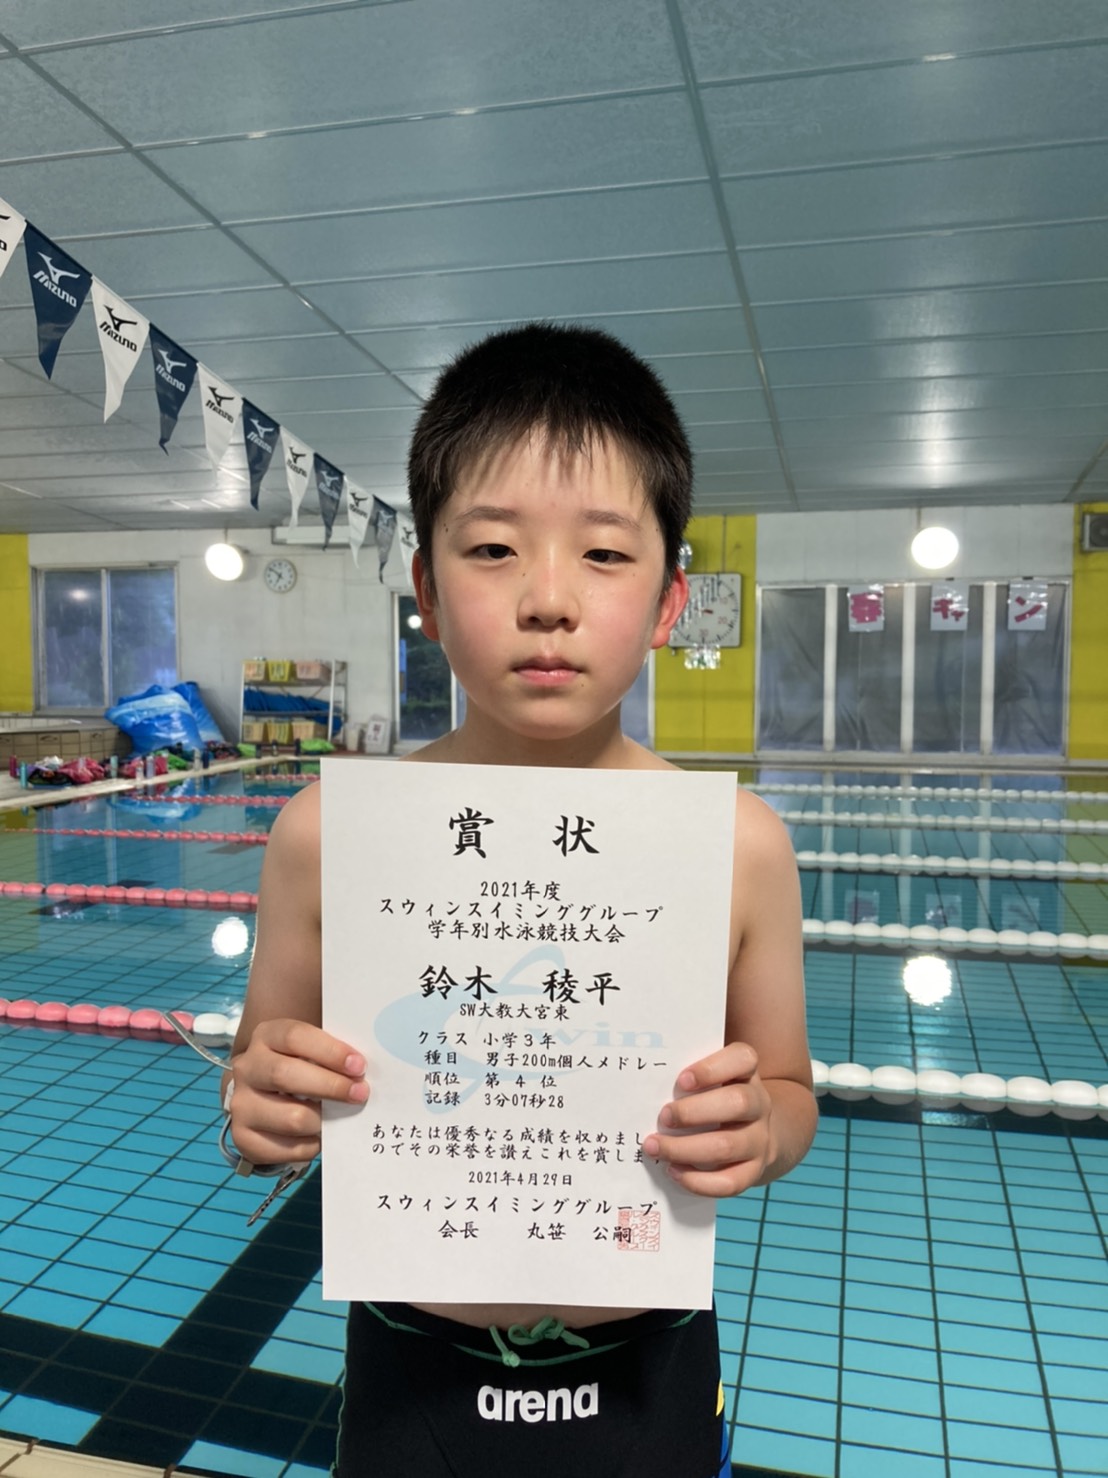 MIZUNO
MIZUNO
MIZUNO
MIZUNO
MIZUNO
春 キャン
賞 状
2021年度
スウィンスイミンググループ
学年別水泳競技大会
鈴木 稜平
SW大教大宮東
クラス 小学3年
種目 男子200m個人メドレー
順位 第 4 位
記録 3分07秒28
あなたは優秀なる成績を収めまし
のでその栄誉を讃えこれを賞しま
2021年4月29日
スウィンスイミンググループ
会長 丸笹 公嗣
Swin
arena